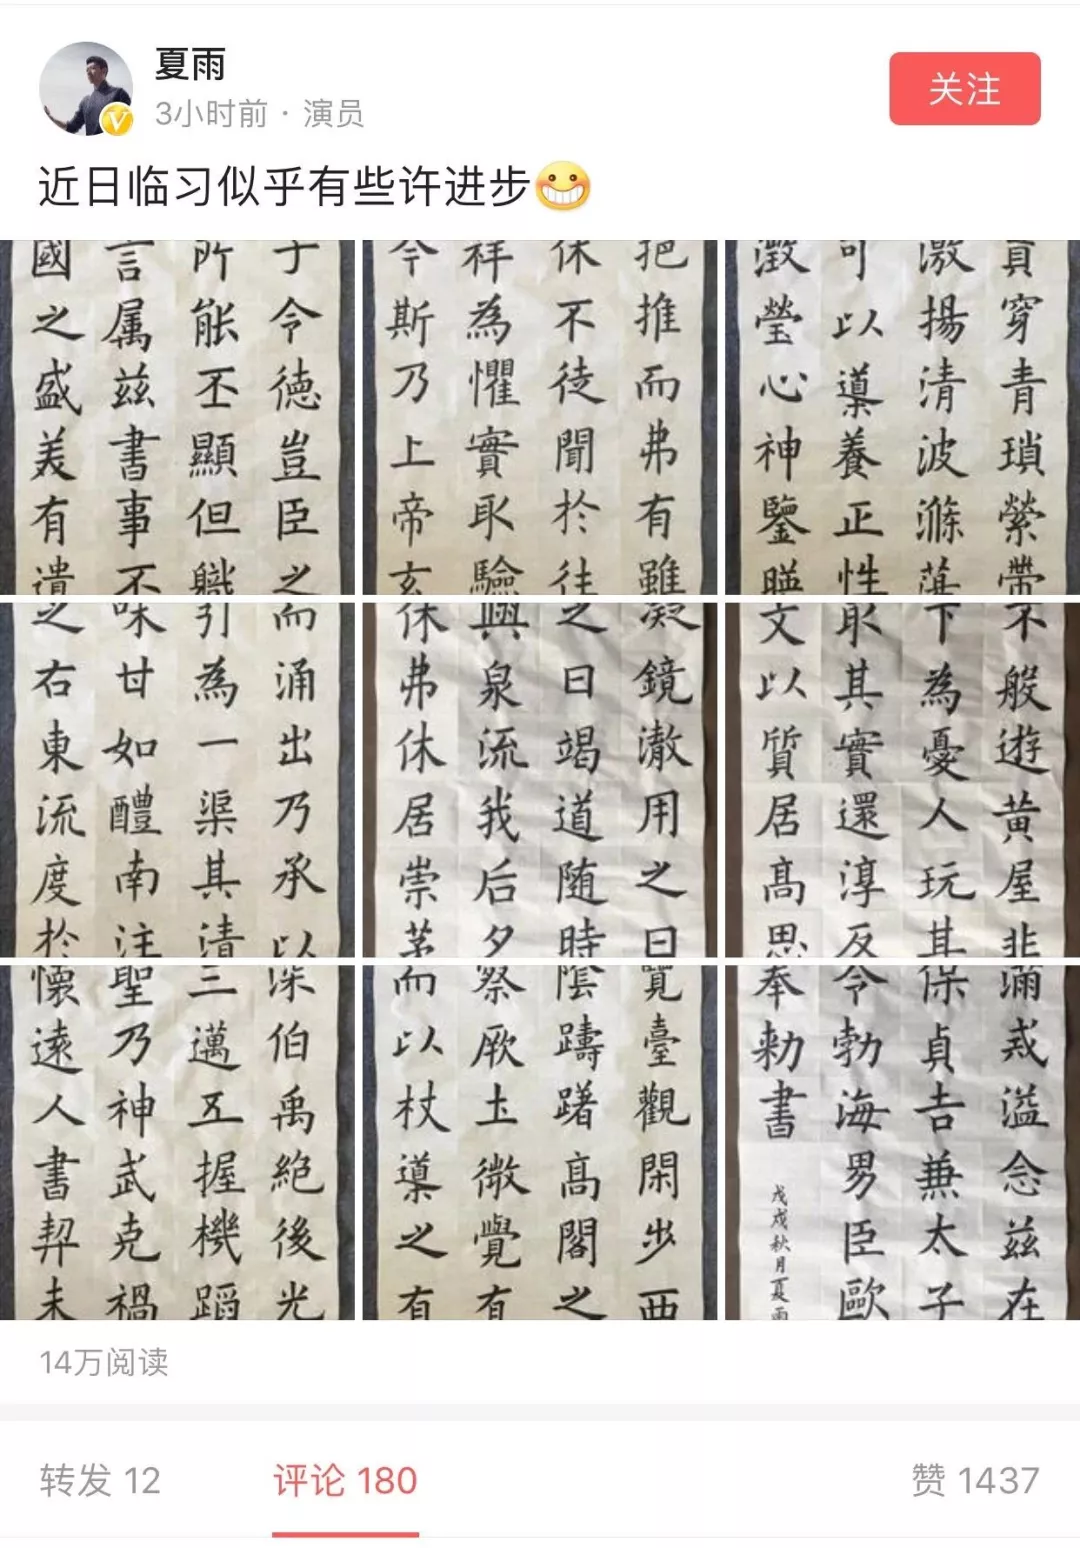 夏雨
3小时前 · 演员
关注
近日临习似乎有些许进步😁
于令德豈臣之
所能丕顯但職
言属兹書事不
國之盛美有遺
挹推而弗有雖
休不徒聞於往
祥為懼實取驗
今斯乃上帝玄
貫穿青瑣縈帶
激揚清波滌蕩
可以導養正性
澂瑩心神鑒暎
而涌出乃承以
引為一渠其清
味甘如醴南注
之右東流度於
凝鏡澈用之日
之日竭道随時
與泉流我后夕
休弗休居崇茅
不般遊黄屋非
下為憂人玩其
取其實還淳反
文以質居髙思
深伯禹絶後光
三邁五握機蹈
聖乃神武克禍
懷遠人書契未
覽臺觀閑步西
陰躊躇髙閣之
察厥土微覺有
而以杖導之有
滿戒溢念兹在
保貞吉兼太子
令勃海男臣歐
奉勑書
戊戌秋月夏雨
14万阅读
转发 12
评论 180
赞 1437